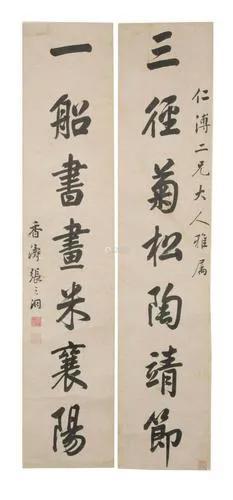 仁溥二兄大人雅属
三径菊松陶靖節
一船書畫米襄陽
香濤張之洞